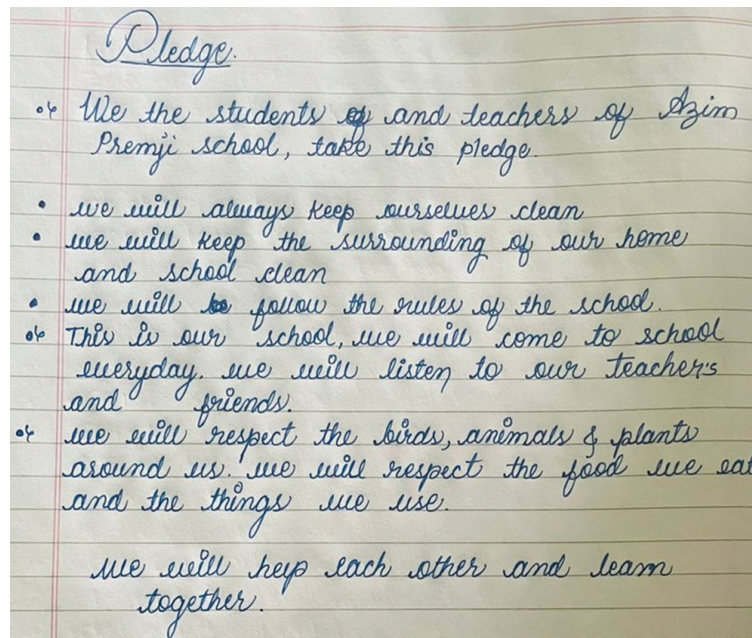 Pledge.
We the students and teachers of Azim
Premji school, take this pledge.
• we will always keep ourselves clean
• we will keep the surrounding of our home
and school clean
• we will follow the rules of the school.
This is our school, we will come to school
everyday. we will listen to our teacher's
and friends.
we will respect the birds, animals & plants
around us. we will respect the food we eat
and the things we use.
we will heyp each other and learn
together.